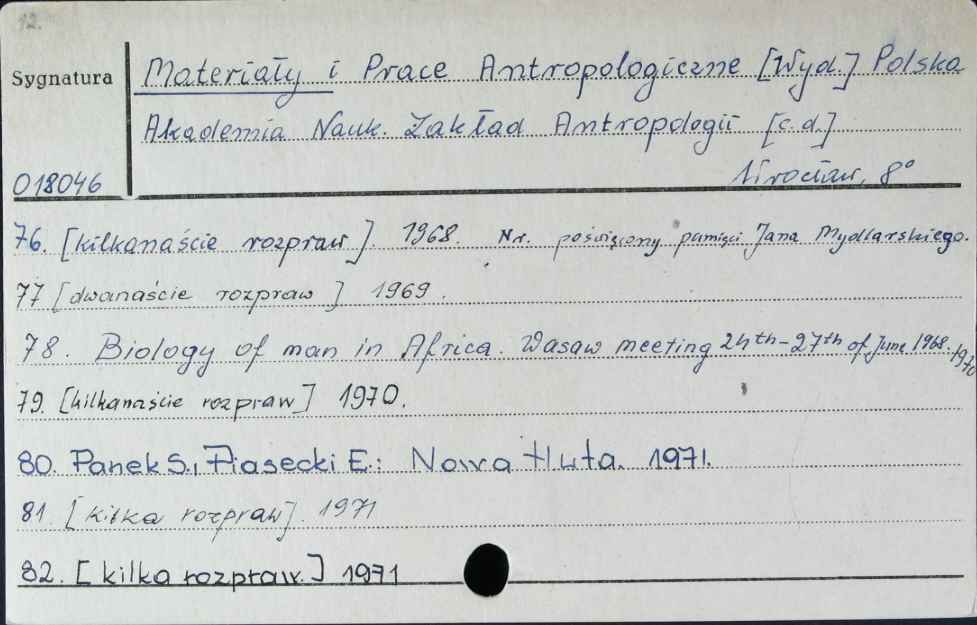 12.
Sygnatura
Materiały i Prace Antropologiczne [Wyd.] Polska
Akademia Nauk. Zakład Antropologii [c.d.]
018046
Wrocław, 8°
76. [kilkanaście rozpraw]. 1968. Nr. poświęcony pamięci Jana Mydlarskiego.
77 [dwanaście rozpraw] 1969.
78. Biology of man in Africa. Wasaw meeting 24th-27th of June 1968. 1970
79. [kilkanaście rozpraw] 1970.
80. Panek S., Piasecki E.: Nowa Huta. 1971.
81. [kilka rozpraw]. 1971
82. [kilka rozpraw.] 1971